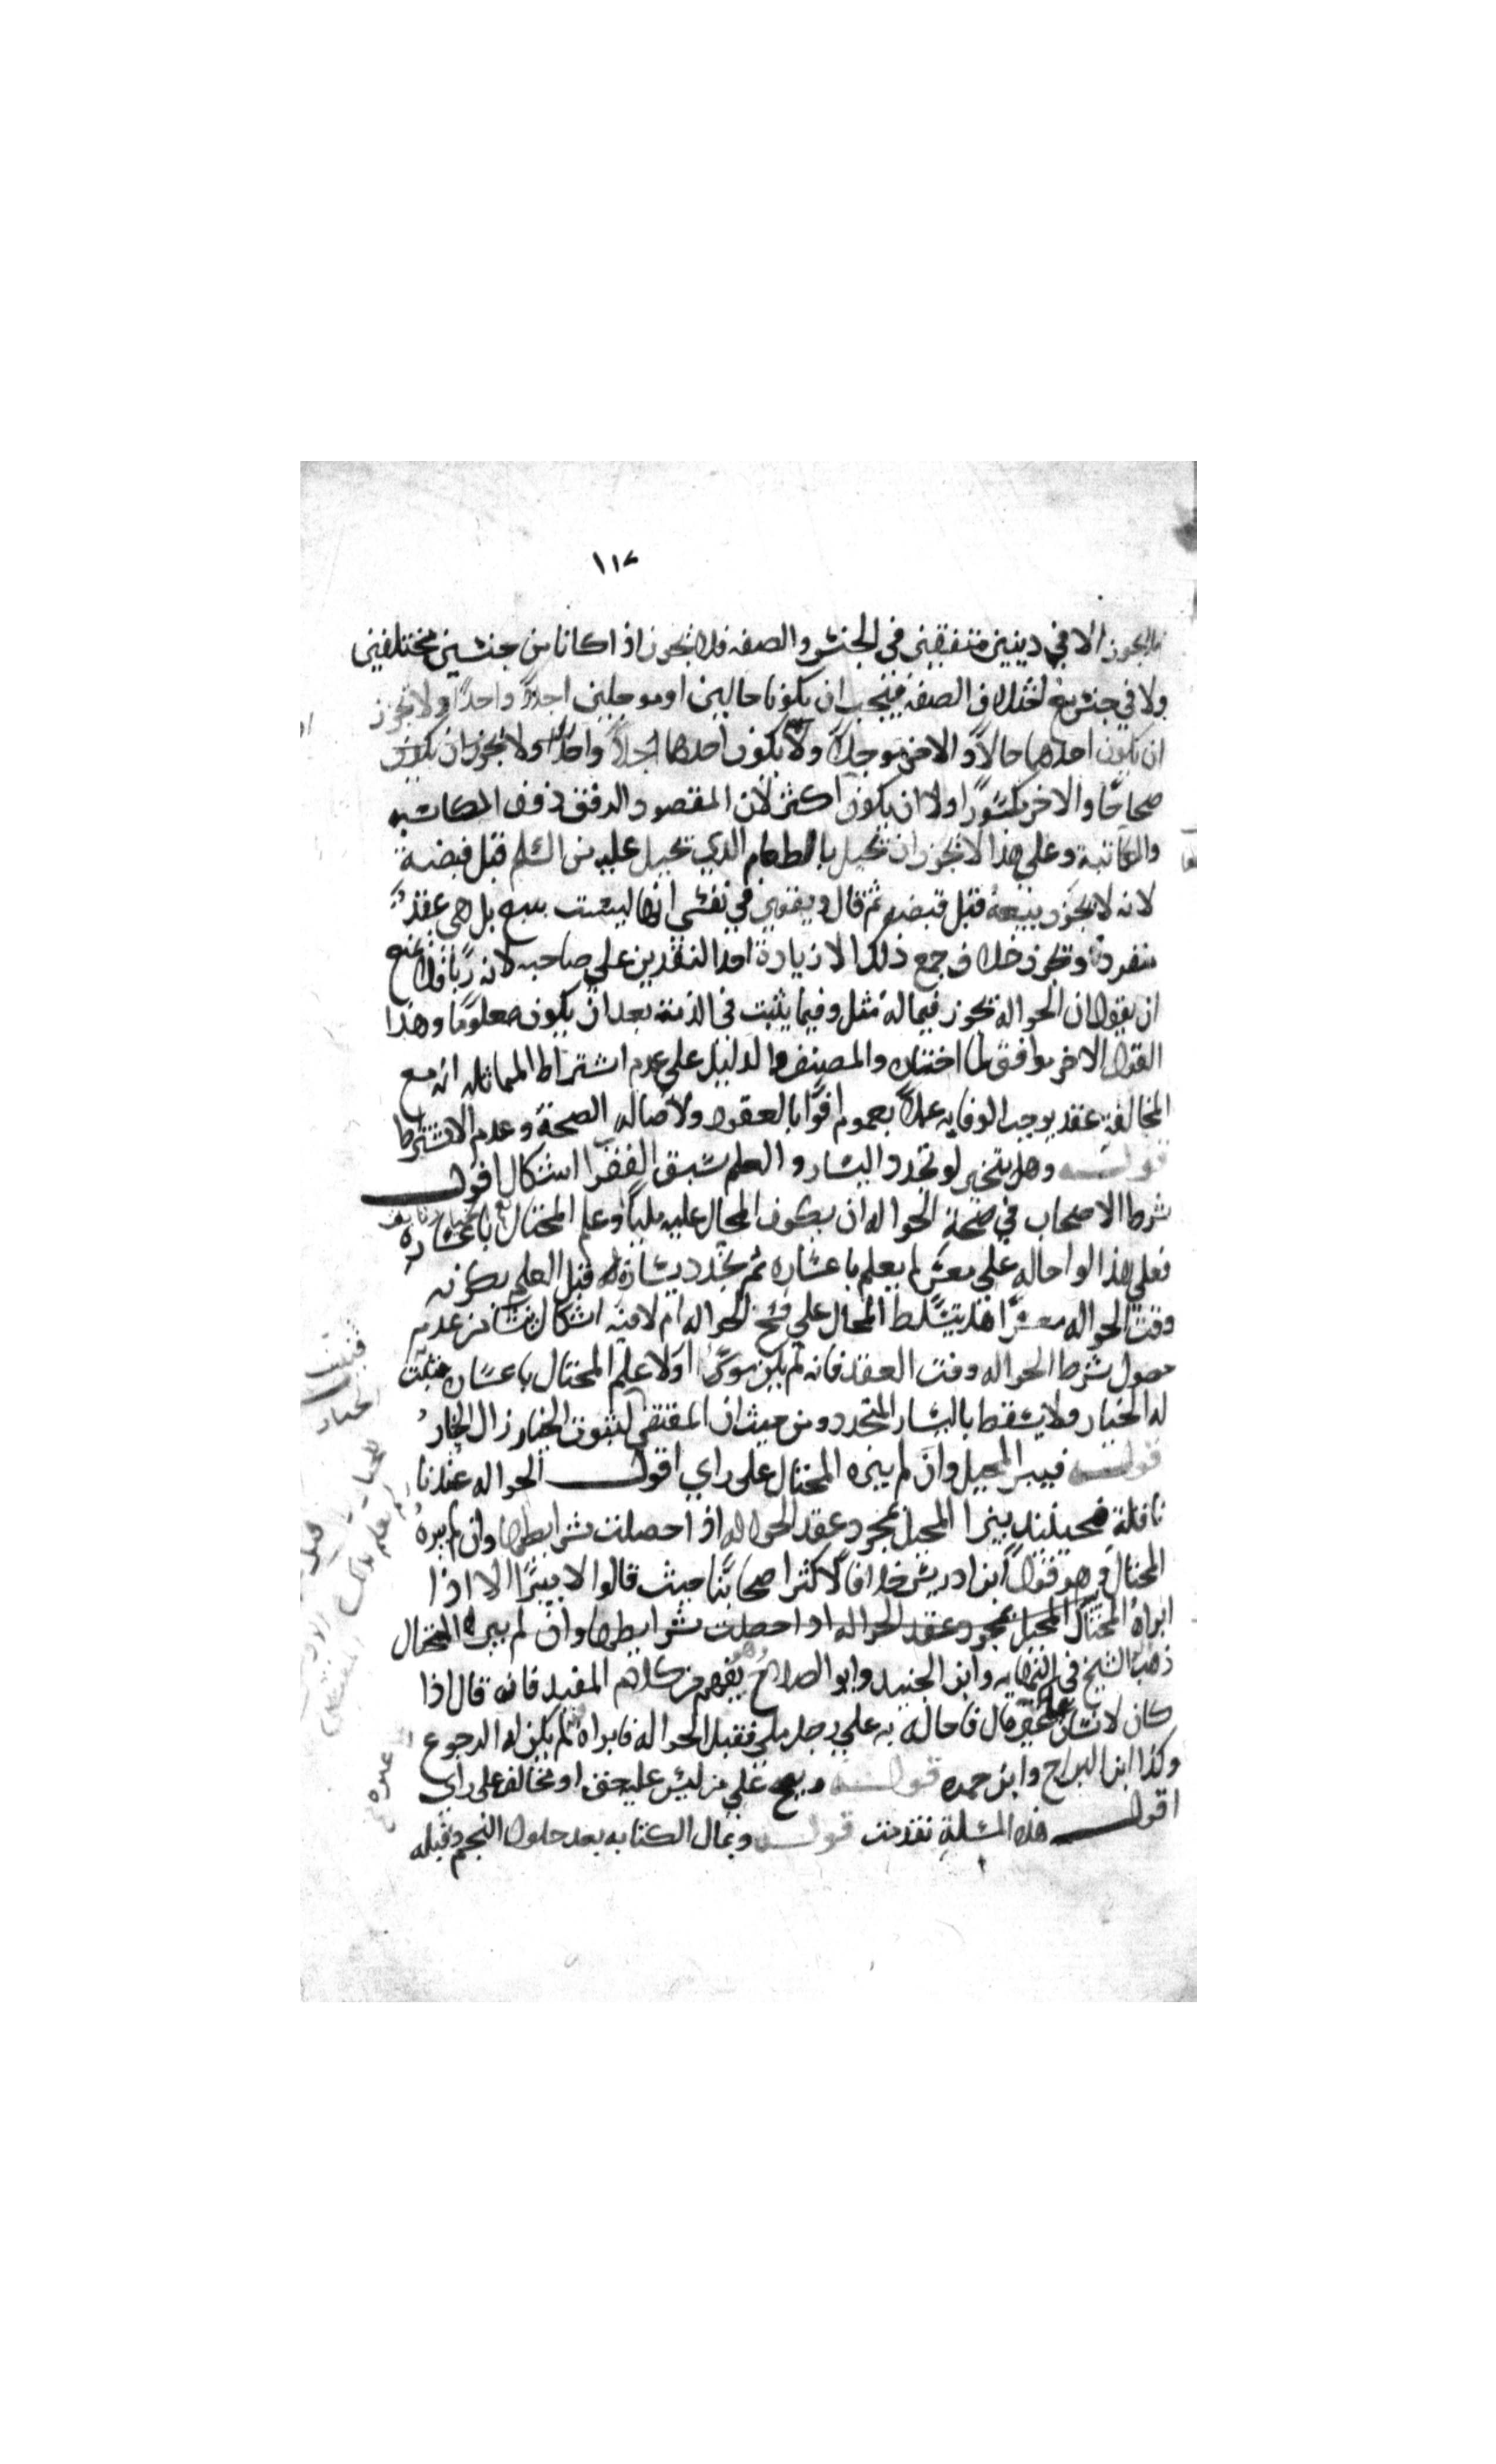 ١١٧
فلا يجوز الا في دينين متفقين في الجنس والصفه فلا يجوز اذا كانا من جنسين مختلفين
ولا في جنس مع اختلاف الصفه فيجب ان يكونا حالين او موجلين اجلاً واحداً ولا يجوز
ان يكون احدهما حالاً والاخر موجلاً ولا يكون احدهما اجلاً واحداً ولا يجوز ان يكون
صحاحًا والاخر مكسورًا ولا ان يكون اكثر لان المقصود الرفق
والمكاتبة وعلى هذا لا يجوز ان تحيل بالطعام الذي تحيل عليه من السلم قبل قبضه
لانه لا يجوز بيعه قبل قبضه ثم قال ويقوي في نفسي انها ليست ببيع بل هي عقد
منفرد ويجوز خلاف جمع ذلك الا زيادة احد النقدين على صاحبه لانه ربًا
ان يقول ان الحواله تجوز فيما له مثل وفيما يثبت في الذمة بعد ان يكون معلومًا وهذا
القول الاخر موافق لما اختاره المصنف والدليل على عدم اشتراط المماثله انه مع
المخالفة عقد يوجب الوفا به عملاً بعموم اوفوا بالعقود ولاصالة الصحة وعدم الاشتراط
قوله وهل يتخير لو تجدد اليسار والعلم بسبق الفقر اشكال اقول
شرط الاصحاب في صحة الحواله ان يكون المحال عليه مليًا وعلم المحتال باعساره
فعلى هذا لو احاله على معسر لم يعلم باعساره ثم تجدد يساره قبل العلم بكونه
وقت الحواله معسرًا هل يتسلط المحال على فسخ الحواله ام لا فيه اشكال ينشا من عدم
حصول شرط الحواله وقت العقد فانه لم يكن موسرًا ولا علم المحتال باعساره فيثبت
له الخيار ولا يسقط باليسار المتجدد ومن حيث ان المقتضي لثبوت الخيار زال الخيار
قوله فيبرا المحيل وان لم يبره المحتال على راي اقول الحواله عندنا
ناقلة فحينئذ يبرا المحيل بمجرد عقد الحواله اذا حصلت شرايطها وان لم يبره
المحتال وهو قول ابن ادريس خلافًا لاكثر اصحابنا حيث قالوا لا يبرا الا اذا
ابراه المحتال المحيل بمجرد عقد الحواله اذا حصلت شرايطها وان لم يبره المحتال
ذهب الشيخ في النهايه وابن الجنيد وابو الصلاح وهو يفهم من كلام المفيد فانه قال اذا
كان لانسان على غيره مال فاحاله به على رجل ملي فقبل الحواله فابراه لم يكن له الرجوع
وكذا ابن البراج وابن حمزه قوله ويصح على من ليس عليه حق او مخالف على راي
اقول هذه المسلة تقدمت قوله وبمال الكتابه بعد حلول النجم وقبله
فيثبت
الخيار